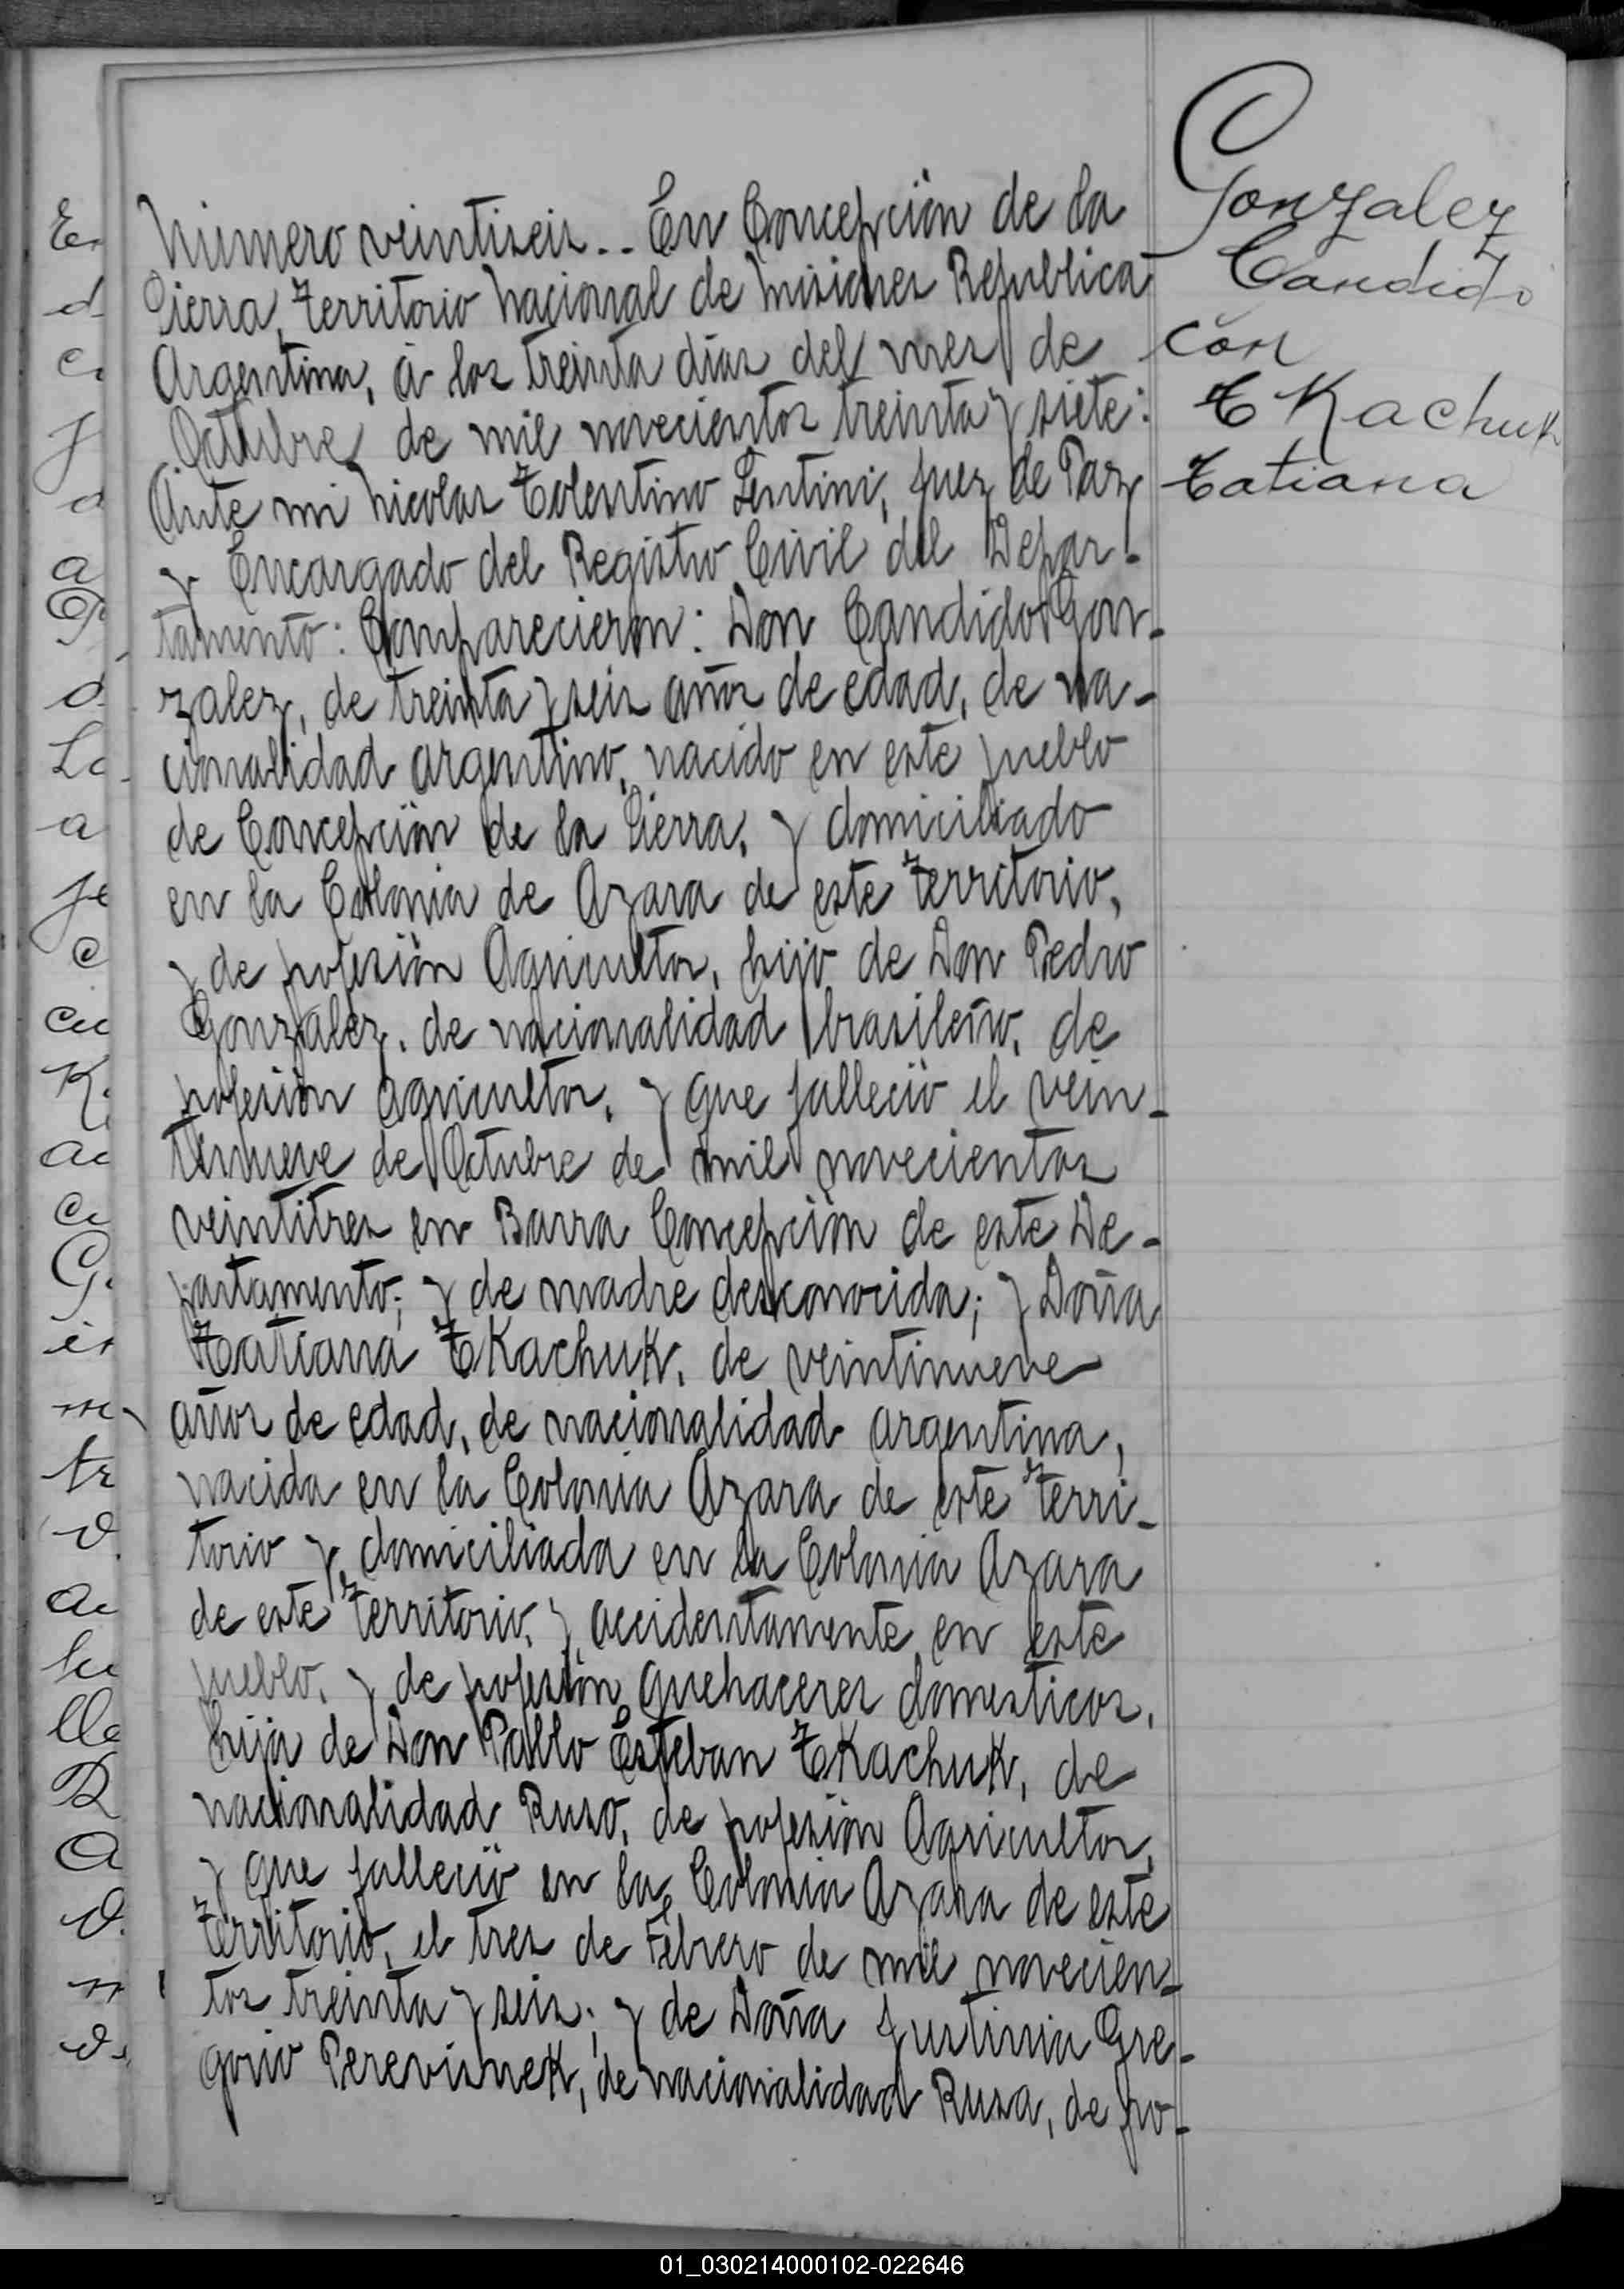 Gonzalez
Candido
con
TKachuk
Tatiana
Número veintiseis.. En Concepción de la
Sierra, Territorio Nacional de Misiones Republica
Argentina, á los treinta días del mes de
Octubre de mil novecientos treinta y siete:
Ante mi Nicolas Tolentino Lentini, Juez de Paz
y Encargado del Registro Civil del Depar-
tamento: Comparecieron: Don Candido Gon-
zalez, de treinta y seis años de edad, de na-
cionalidad argentino, nacido en este pueblo
de Concepción de la Sierra, y domiciliado
en la Colonia de Azara de este Territorio,
y de profesión Agricultor, hijo de Don Pedro
Gonzalez, de nacionalidad brasileño, de
profesión agricultor, y que falleció el vein-
tinueve de Octubre de mil novecientos
veintitres en Barra Concepción de este De-
partamento; y de madre desconocida; y Doña
Tatiana TKachuK, de veintinueve
años de edad, de nacionalidad argentina,
nacida en la Colonia Azara de este Terri-
torio y domiciliada en la Colonia Azara
de este Territorio, y accidentamente en este
pueblo, y de profesión quehaceres domesticos,
hija de Don Pablo Esteban TKachuK, de
nacionalidad Ruso, de profesión Agricultor,
y que falleció en la Colonia Azara de este
Territorio, el tres de Febrero de mil novecien-
tos treinta y seis; y de Doña Justinia Gre-
gorio PerevisneK, de nacionalidad Rusa, de pro-
01_030214000102-022646